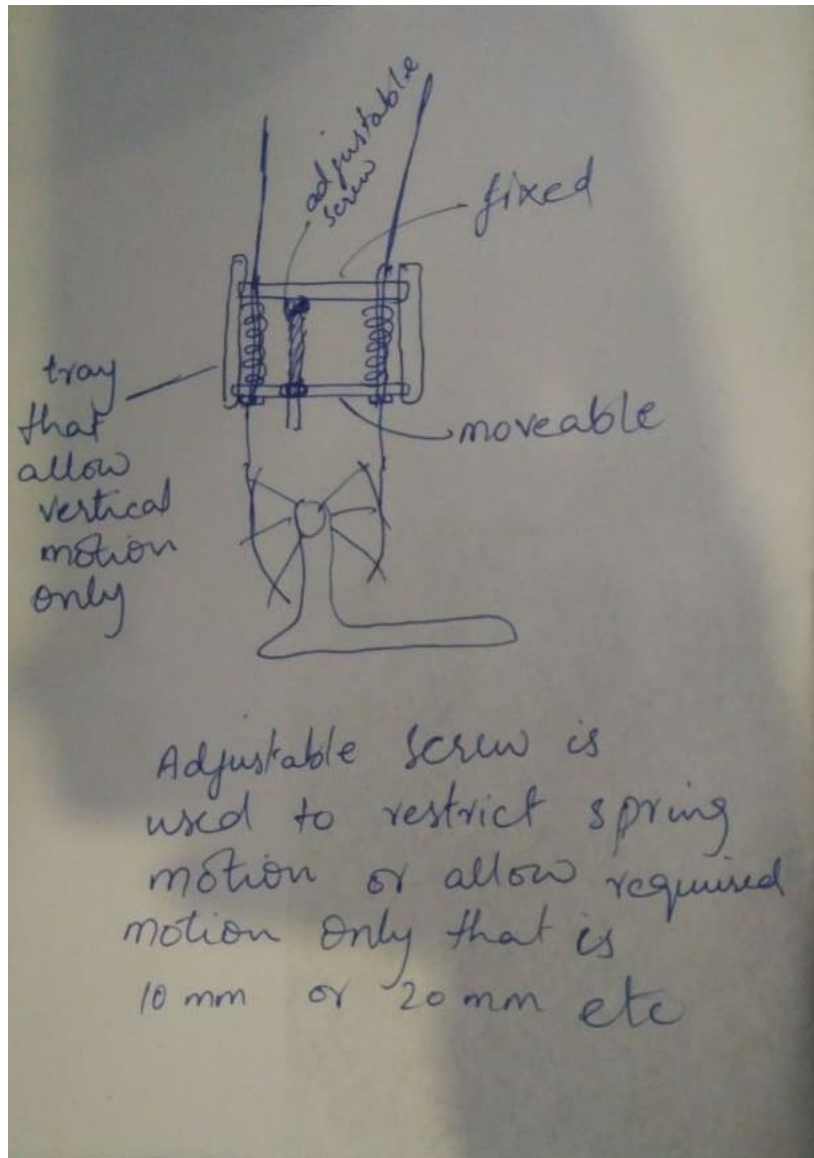 adjustable
screw
fixed
tray
that
allow
vertical
motion
only
moveable
Adjustable screw is
used to restrict spring
motion or allow required
motion only that is
10 mm or 20 mm etc